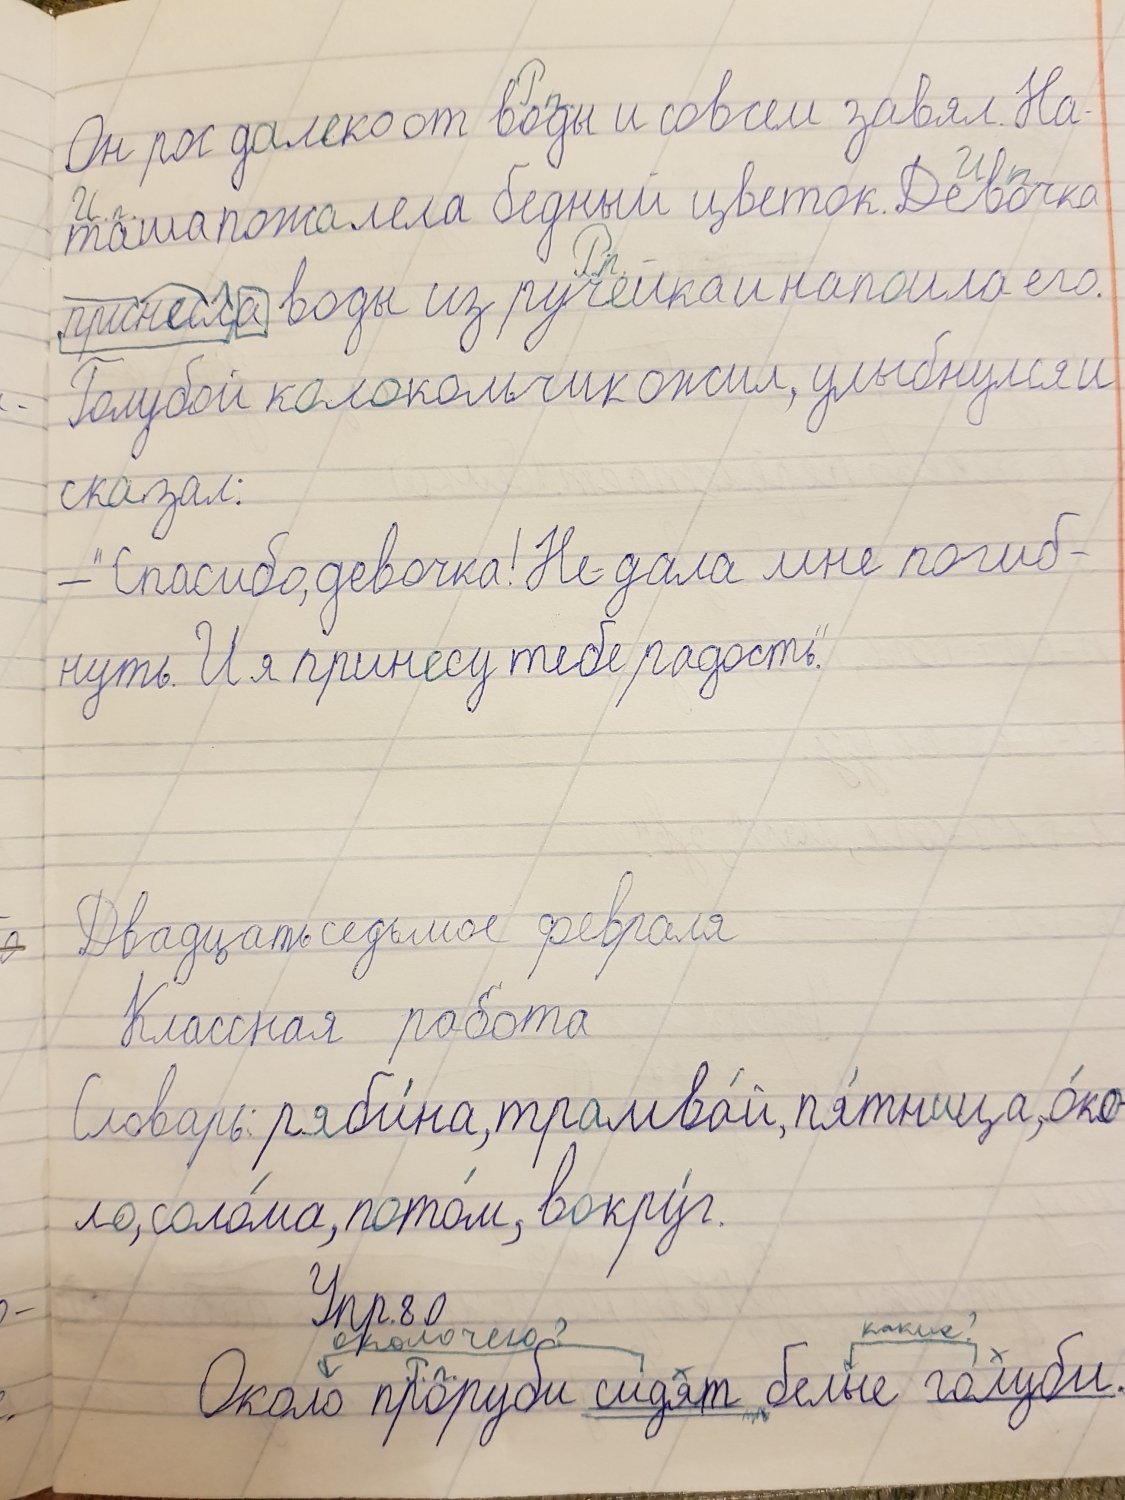 Р.п.
Он рос далеко от воды и совсем завял. На-
И.п. И.п.
таша пожалела бедный цветок. Девочка
Р.п.
принесла воды из ручейка и напоила его.
Голубой колокольчик ожил, улыбнулся и
сказал:
–"Спасибо, девочка! Не дала мне погиб-
нуть. И я принесу тебе радость".
Двадцать седьмое февраля
Классная работа
Словарь: ряби́на, трамва́й, пя́тница, о́ко-
ло, соло́ма, пото́м, вокру́г.
Упр. 80
около чего? какие?
Р.п.
Около проруби сидят белые голуби.